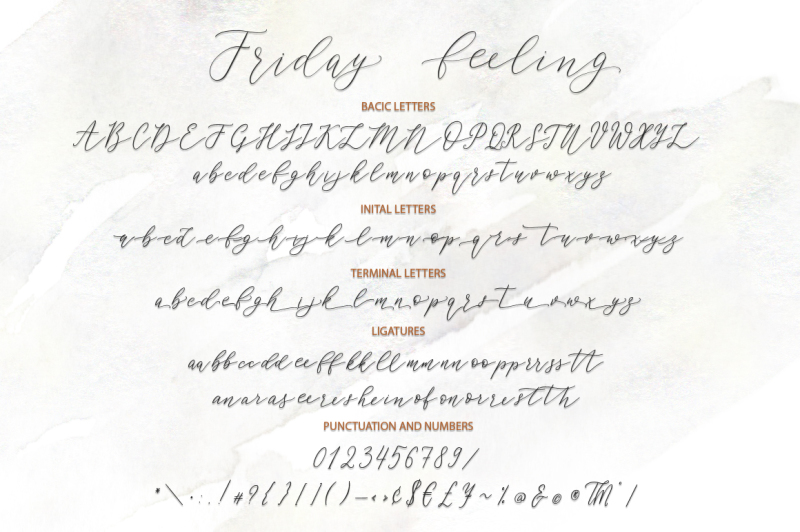 Friday feeling
BACIC LETTERS
ABCDEFGHIJKLMNOPQRSTUVWXYZ
abcdefghijklmnopqrstuvwxyz
INITAL LETTERS
abcdefghijklmnopqrstuvwxyz
TERMINAL LETTERS
abcdefghijklmnopqrstuvwxyz
LIGATURES
aabbccddeeffkkllmmnnoopprrsstt
anaraseeresheinofonorrestth
PUNCTUATION AND NUMBERS
0123456789/
*\·:.!#?{}//()—‹›¢$€£¥~%@&©®™°/